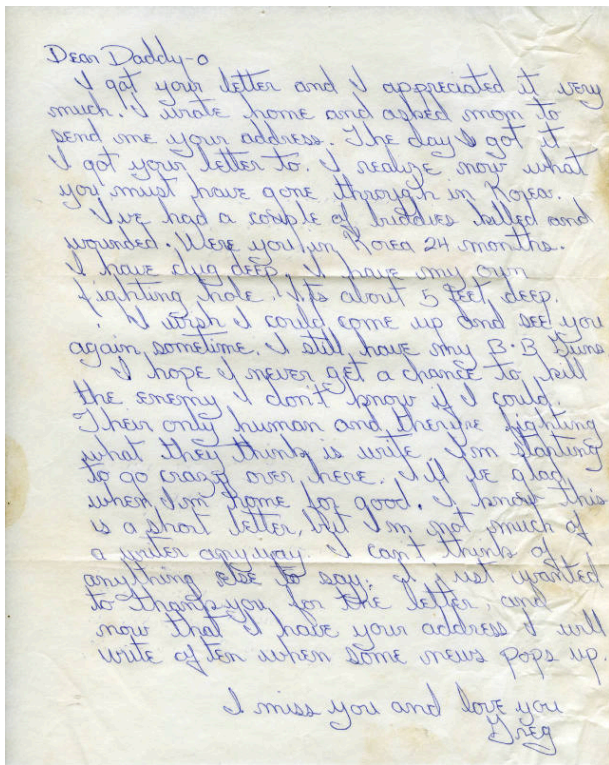 Dear Daddy-o
I got your letter and I appreciated it very
much. I wrote home and asked mom to
send me your address. The day I got it
I got your letter to. I realize now what
you must have gone through in Korea.
I've had a couple of buddies killed and
wounded. Were you in Korea 24 months.
I have dug deep. I have my own
fighting hole. Its about 5 feet deep.
I wish I could come up and see you
again sometime. I still have my B-B Guns
I hope I never get a chance to kill
the enemy I don't know if I could.
Their only human and they're fighting
what they think is write. I'm starting
to go crazy over here. I'll be glad
when I'm home for good. I know this
is a short letter, but I'm not much of
a writer anyway. I can't think of
anything else to say. I just wanted
to thank you for the letter, and
now that I have your address I will
write often when some news pops up.
I miss you and love you
Greg